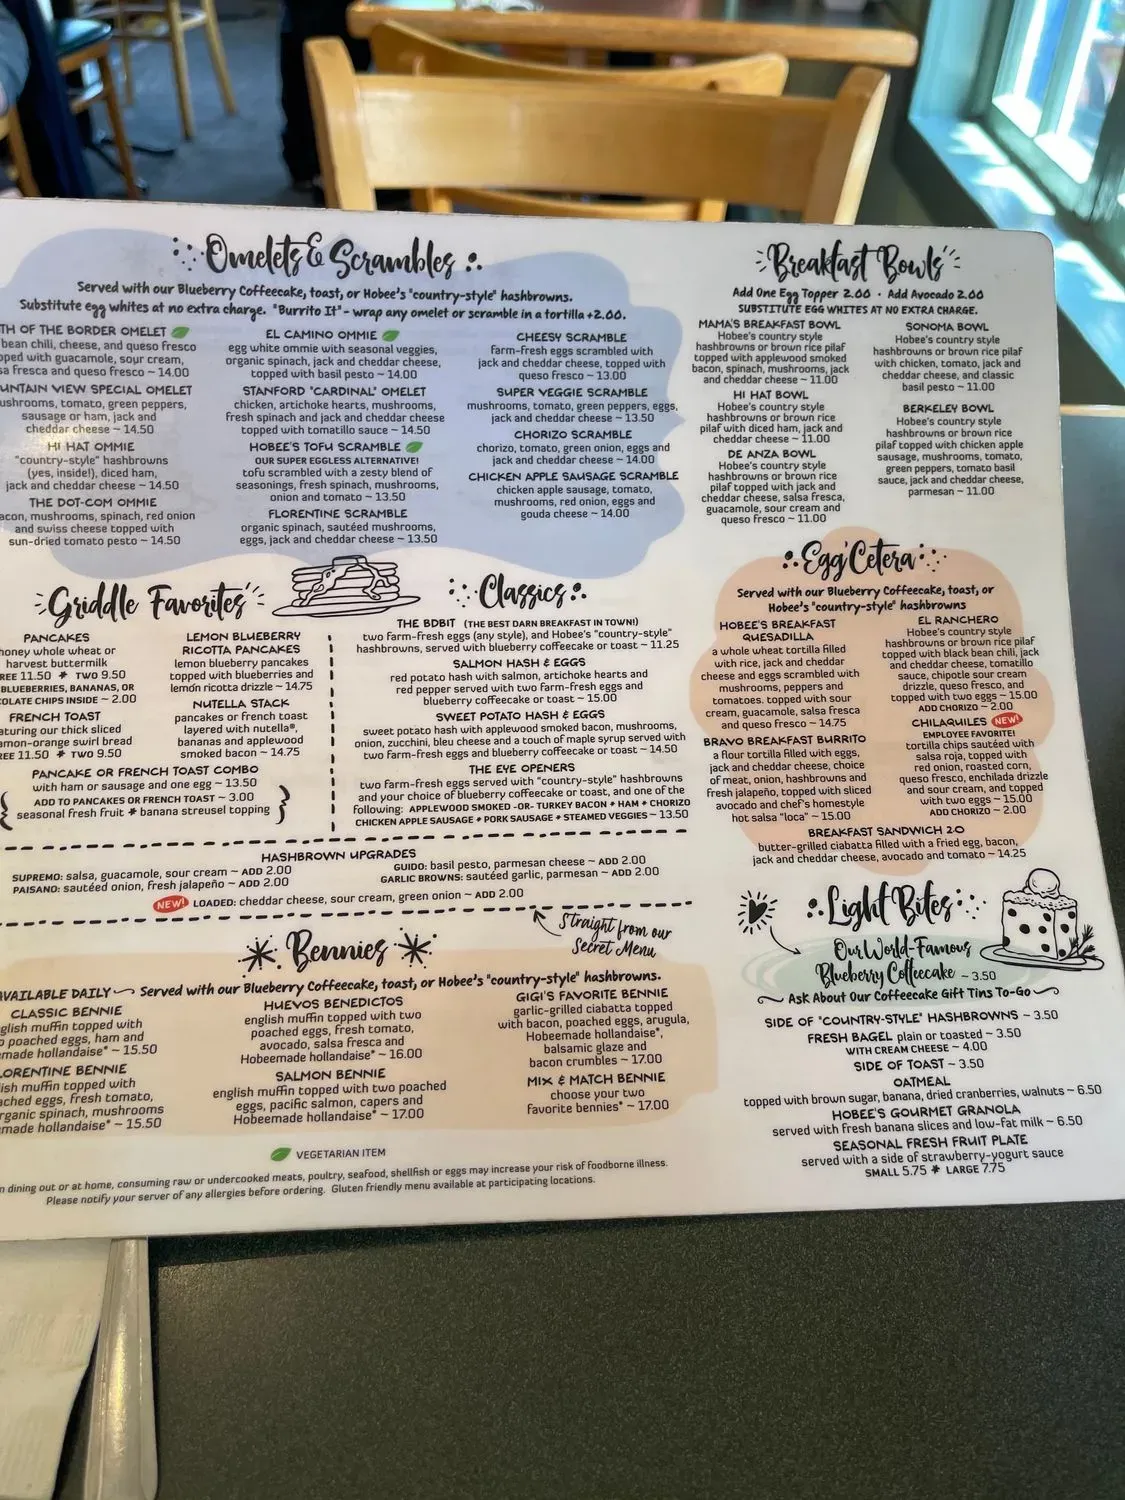 Omelets & Scrambles
Served with our Blueberry Coffeecake, toast, or Hobee's "country-style" hashbrowns.
Substitute egg whites at no extra charge. "Burrito It" - wrap any omelet or scramble in a tortilla +2.00.
TH OF THE BORDER OMELET
bean chili, cheese, and queso fresco
pped with guacamole, sour cream,
sa fresca and queso fresco ~ 14.00
UNTAIN VIEW SPECIAL OMELET
ushrooms, tomato, green peppers,
sausage or ham, jack and
cheddar cheese ~ 14.50
HI HAT OMMIE
"country-style" hashbrowns
(yes, inside!), diced ham,
jack and cheddar cheese ~ 14.50
THE DOT-COM OMMIE
acon, mushrooms, spinach, red onion
and swiss cheese topped with
sun-dried tomato pesto ~ 14.50
EL CAMINO OMMIE
egg white ommie with seasonal veggies,
organic spinach, jack and cheddar cheese,
topped with basil pesto ~ 14.00
STANFORD "CARDINAL" OMELET
chicken, artichoke hearts, mushrooms,
fresh spinach and jack and cheddar cheese
topped with tomatillo sauce ~ 14.50
HOBEE'S TOFU SCRAMBLE
OUR SUPER EGGLESS ALTERNATIVE!
tofu scrambled with a zesty blend of
seasonings, fresh spinach, mushrooms,
onion and tomato ~ 13.50
FLORENTINE SCRAMBLE
organic spinach, sautéed mushrooms,
eggs, jack and cheddar cheese ~ 13.50
CHEESY SCRAMBLE
farm-fresh eggs scrambled with
jack and cheddar cheese, topped with
queso fresco ~ 13.00
SUPER VEGGIE SCRAMBLE
mushrooms, tomato, green peppers, eggs,
jack and cheddar cheese ~ 13.50
CHORIZO SCRAMBLE
chorizo, tomato, green onion, eggs and
jack and cheddar cheese ~ 14.00
CHICKEN APPLE SAUSAGE SCRAMBLE
chicken apple sausage, tomato,
mushrooms, red onion, eggs and
gouda cheese ~ 14.00
Breakfast Bowls
Add One Egg Topper 2.00 · Add Avocado 2.00
SUBSTITUTE EGG WHITES AT NO EXTRA CHARGE.
MAMA'S BREAKFAST BOWL
Hobee's country style
hashbrowns or brown rice pilaf
topped with applewood smoked
bacon, spinach, mushrooms, jack
and cheddar cheese ~ 11.00
HI HAT BOWL
Hobee's country style
hashbrowns or brown rice
pilaf with diced ham, jack and
cheddar cheese ~ 11.00
DE ANZA BOWL
Hobee's country style
hashbrowns or brown rice
pilaf topped with jack and
cheddar cheese, salsa fresca,
guacamole, sour cream and
queso fresco ~ 11.00
SONOMA BOWL
Hobee's country style
hashbrowns or brown rice pilaf
with chicken, tomato, jack and
cheddar cheese, and classic
basil pesto ~ 11.00
BERKELEY BOWL
Hobee's country style
hashbrowns or brown rice
pilaf topped with chicken apple
sausage, mushrooms, tomato,
green peppers, tomato basil
sauce, jack and cheddar cheese,
parmesan ~ 11.00
Griddle Favorites
PANCAKES
honey whole wheat or
harvest buttermilk
REE 11.50 * TWO 9.50
BLUEBERRIES, BANANAS, OR
OLATE CHIPS INSIDE ~ 2.00
FRENCH TOAST
aturing our thick sliced
amon-orange swirl bread
REE 11.50 * TWO 9.50
LEMON BLUEBERRY
RICOTTA PANCAKES
lemon blueberry pancakes
topped with blueberries and
lemon ricotta drizzle ~ 14.75
NUTELLA STACK
pancakes or french toast
layered with nutella®,
bananas and applewood
smoked bacon ~ 14.75
PANCAKE OR FRENCH TOAST COMBO
with ham or sausage and one egg ~ 13.50
ADD TO PANCAKES OR FRENCH TOAST ~ 3.00
seasonal fresh fruit * banana streusel topping
Classics
THE BDBIT (THE BEST DARN BREAKFAST IN TOWN!)
two farm-fresh eggs (any style), and Hobee's "country-style"
hashbrowns, served with blueberry coffeecake or toast ~ 11.25
SALMON HASH & EGGS
red potato hash with salmon, artichoke hearts and
red pepper served with two farm-fresh eggs and
blueberry coffeecake or toast ~ 15.00
SWEET POTATO HASH & EGGS
sweet potato hash with applewood smoked bacon, mushrooms,
onion, zucchini, bleu cheese and a touch of maple syrup served with
two farm-fresh eggs and blueberry coffeecake or toast ~ 14.50
THE EYE OPENERS
two farm-fresh eggs served with "country-style" hashbrowns
and your choice of blueberry coffeecake or toast, and one of the
following: APPLEWOOD SMOKED -OR- TURKEY BACON + HAM + CHORIZO
CHICKEN APPLE SAUSAGE + PORK SAUSAGE + STEAMED VEGGIES ~ 13.50
Egg'Cetera
Served with our Blueberry Coffeecake, toast, or
Hobee's "country-style" hashbrowns
HOBEE'S BREAKFAST
QUESADILLA
a whole wheat tortilla filled
with rice, jack and cheddar
cheese and eggs scrambled with
mushrooms, peppers and
tomatoes. topped with sour
cream, guacamole, salsa fresca
and queso fresco ~ 14.75
BRAVO BREAKFAST BURRITO
a flour tortilla filled with eggs,
jack and cheddar cheese, choice
of meat, onion, hashbrowns and
fresh jalapeño, topped with sliced
avocado and chef's homestyle
hot salsa "loca" ~ 15.00
EL RANCHERO
Hobee's country style
hashbrowns or brown rice pilaf
topped with black bean chili, jack
and cheddar cheese, tomatillo
sauce, chipotle sour cream
drizzle, queso fresco, and
topped with two eggs ~ 15.00
ADD CHORIZO ~ 2.00
CHILAQUILES NEW!
EMPLOYEE FAVORITE!
tortilla chips sautéed with
salsa roja, topped with
red onion, roasted corn,
queso fresco, enchilada drizzle
and sour cream, and topped
with two eggs ~ 15.00
ADD CHORIZO ~ 2.00
BREAKFAST SANDWICH 2.0
butter-grilled ciabatta filled with a fried egg, bacon,
jack and cheddar cheese, avocado and tomato ~ 14.25
HASHBROWN UPGRADES
SUPREMO: salsa, guacamole, sour cream ~ ADD 2.00
PAISANO: sautéed onion, fresh jalapeño ~ ADD 2.00
GUIDO: basil pesto, parmesan cheese ~ ADD 2.00
GARLIC BROWNS: sautéed garlic, parmesan ~ ADD 2.00
NEW! LOADED: cheddar cheese, sour cream, green onion ~ ADD 2.00
Straight from our
Secret Menu
Bennies
AVAILABLE DAILY Served with our Blueberry Coffeecake, toast, or Hobee's "country-style" hashbrowns.
CLASSIC BENNIE
glish muffin topped with
o poached eggs, ham and
emade hollandaise* ~ 15.50
ORENTINE BENNIE
lish muffin topped with
ached eggs, fresh tomato,
rganic spinach, mushrooms
made hollandaise* ~ 15.50
HUEVOS BENEDICTOS
english muffin topped with two
poached eggs, fresh tomato,
avocado, salsa fresca and
Hobeemade hollandaise* ~ 16.00
SALMON BENNIE
english muffin topped with two poached
eggs, pacific salmon, capers and
Hobeemade hollandaise* ~ 17.00
GIGI'S FAVORITE BENNIE
garlic-grilled ciabatta topped
with bacon, poached eggs, arugula,
Hobeemade hollandaise*,
balsamic glaze and
bacon crumbles ~ 17.00
MIX & MATCH BENNIE
choose your two
favorite bennies* ~ 17.00
Light Bites
Our World-Famous
Blueberry Coffeecake ~ 3.50
Ask About Our Coffeecake Gift Tins To-Go
SIDE OF "COUNTRY-STYLE" HASHBROWNS ~ 3.50
FRESH BAGEL plain or toasted ~ 3.50
WITH CREAM CHEESE ~ 4.00
SIDE OF TOAST ~ 3.50
OATMEAL
topped with brown sugar, banana, dried cranberries, walnuts ~ 6.50
HOBEE'S GOURMET GRANOLA
served with fresh banana slices and low-fat milk ~ 6.50
SEASONAL FRESH FRUIT PLATE
served with a side of strawberry-yogurt sauce
SMALL 5.75 * LARGE 7.75
VEGETARIAN ITEM
n dining out or at home, consuming raw or undercooked meats, poultry, seafood, shellfish or eggs may increase your risk of foodborne illness.
Please notify your server of any allergies before ordering. Gluten friendly menu available at participating locations.